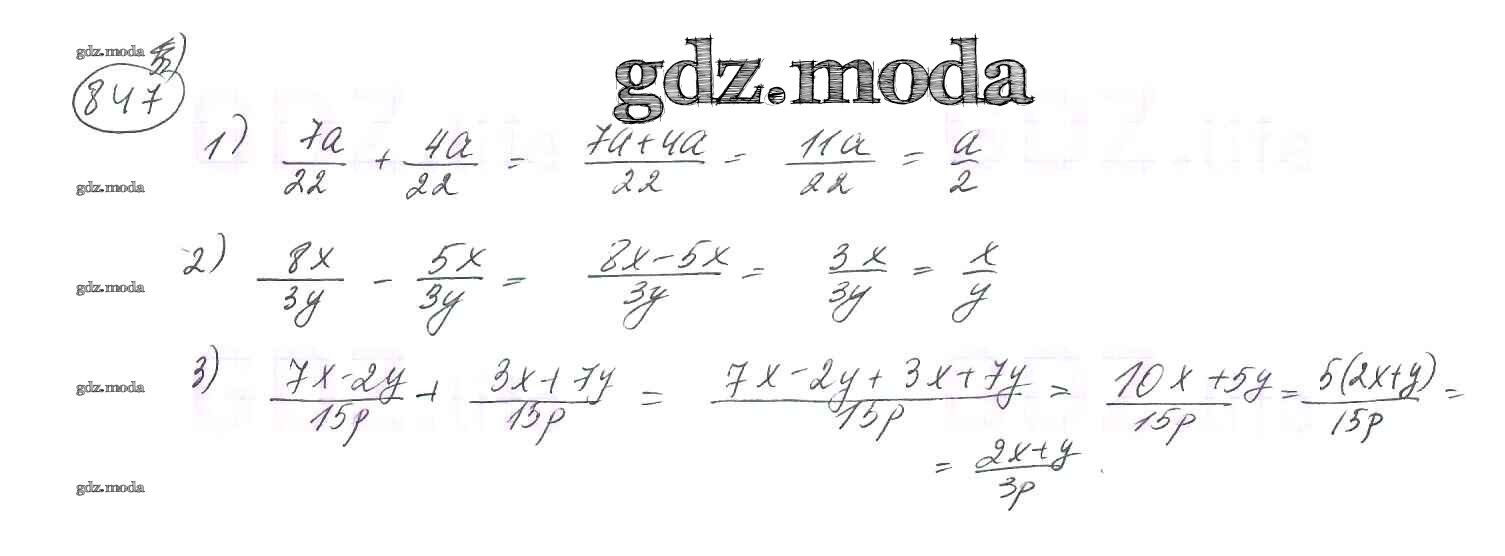 gdz.moda
gdz.moda
847
1) 7a/22 + 4a/22 = 7a+4a/22 = 11a/22 = a/2
gdz.moda
2) 8x/3y - 5x/3y = 8x-5x/3y = 3x/3y = x/y
gdz.moda
3) 7x-2y/15p + 3x+7y/15p = 7x-2y+3x+7y/15p = 10x+5y/15p = 5(2x+y)/15p =
gdz.moda
= 2x+y/3p.
gdz.moda